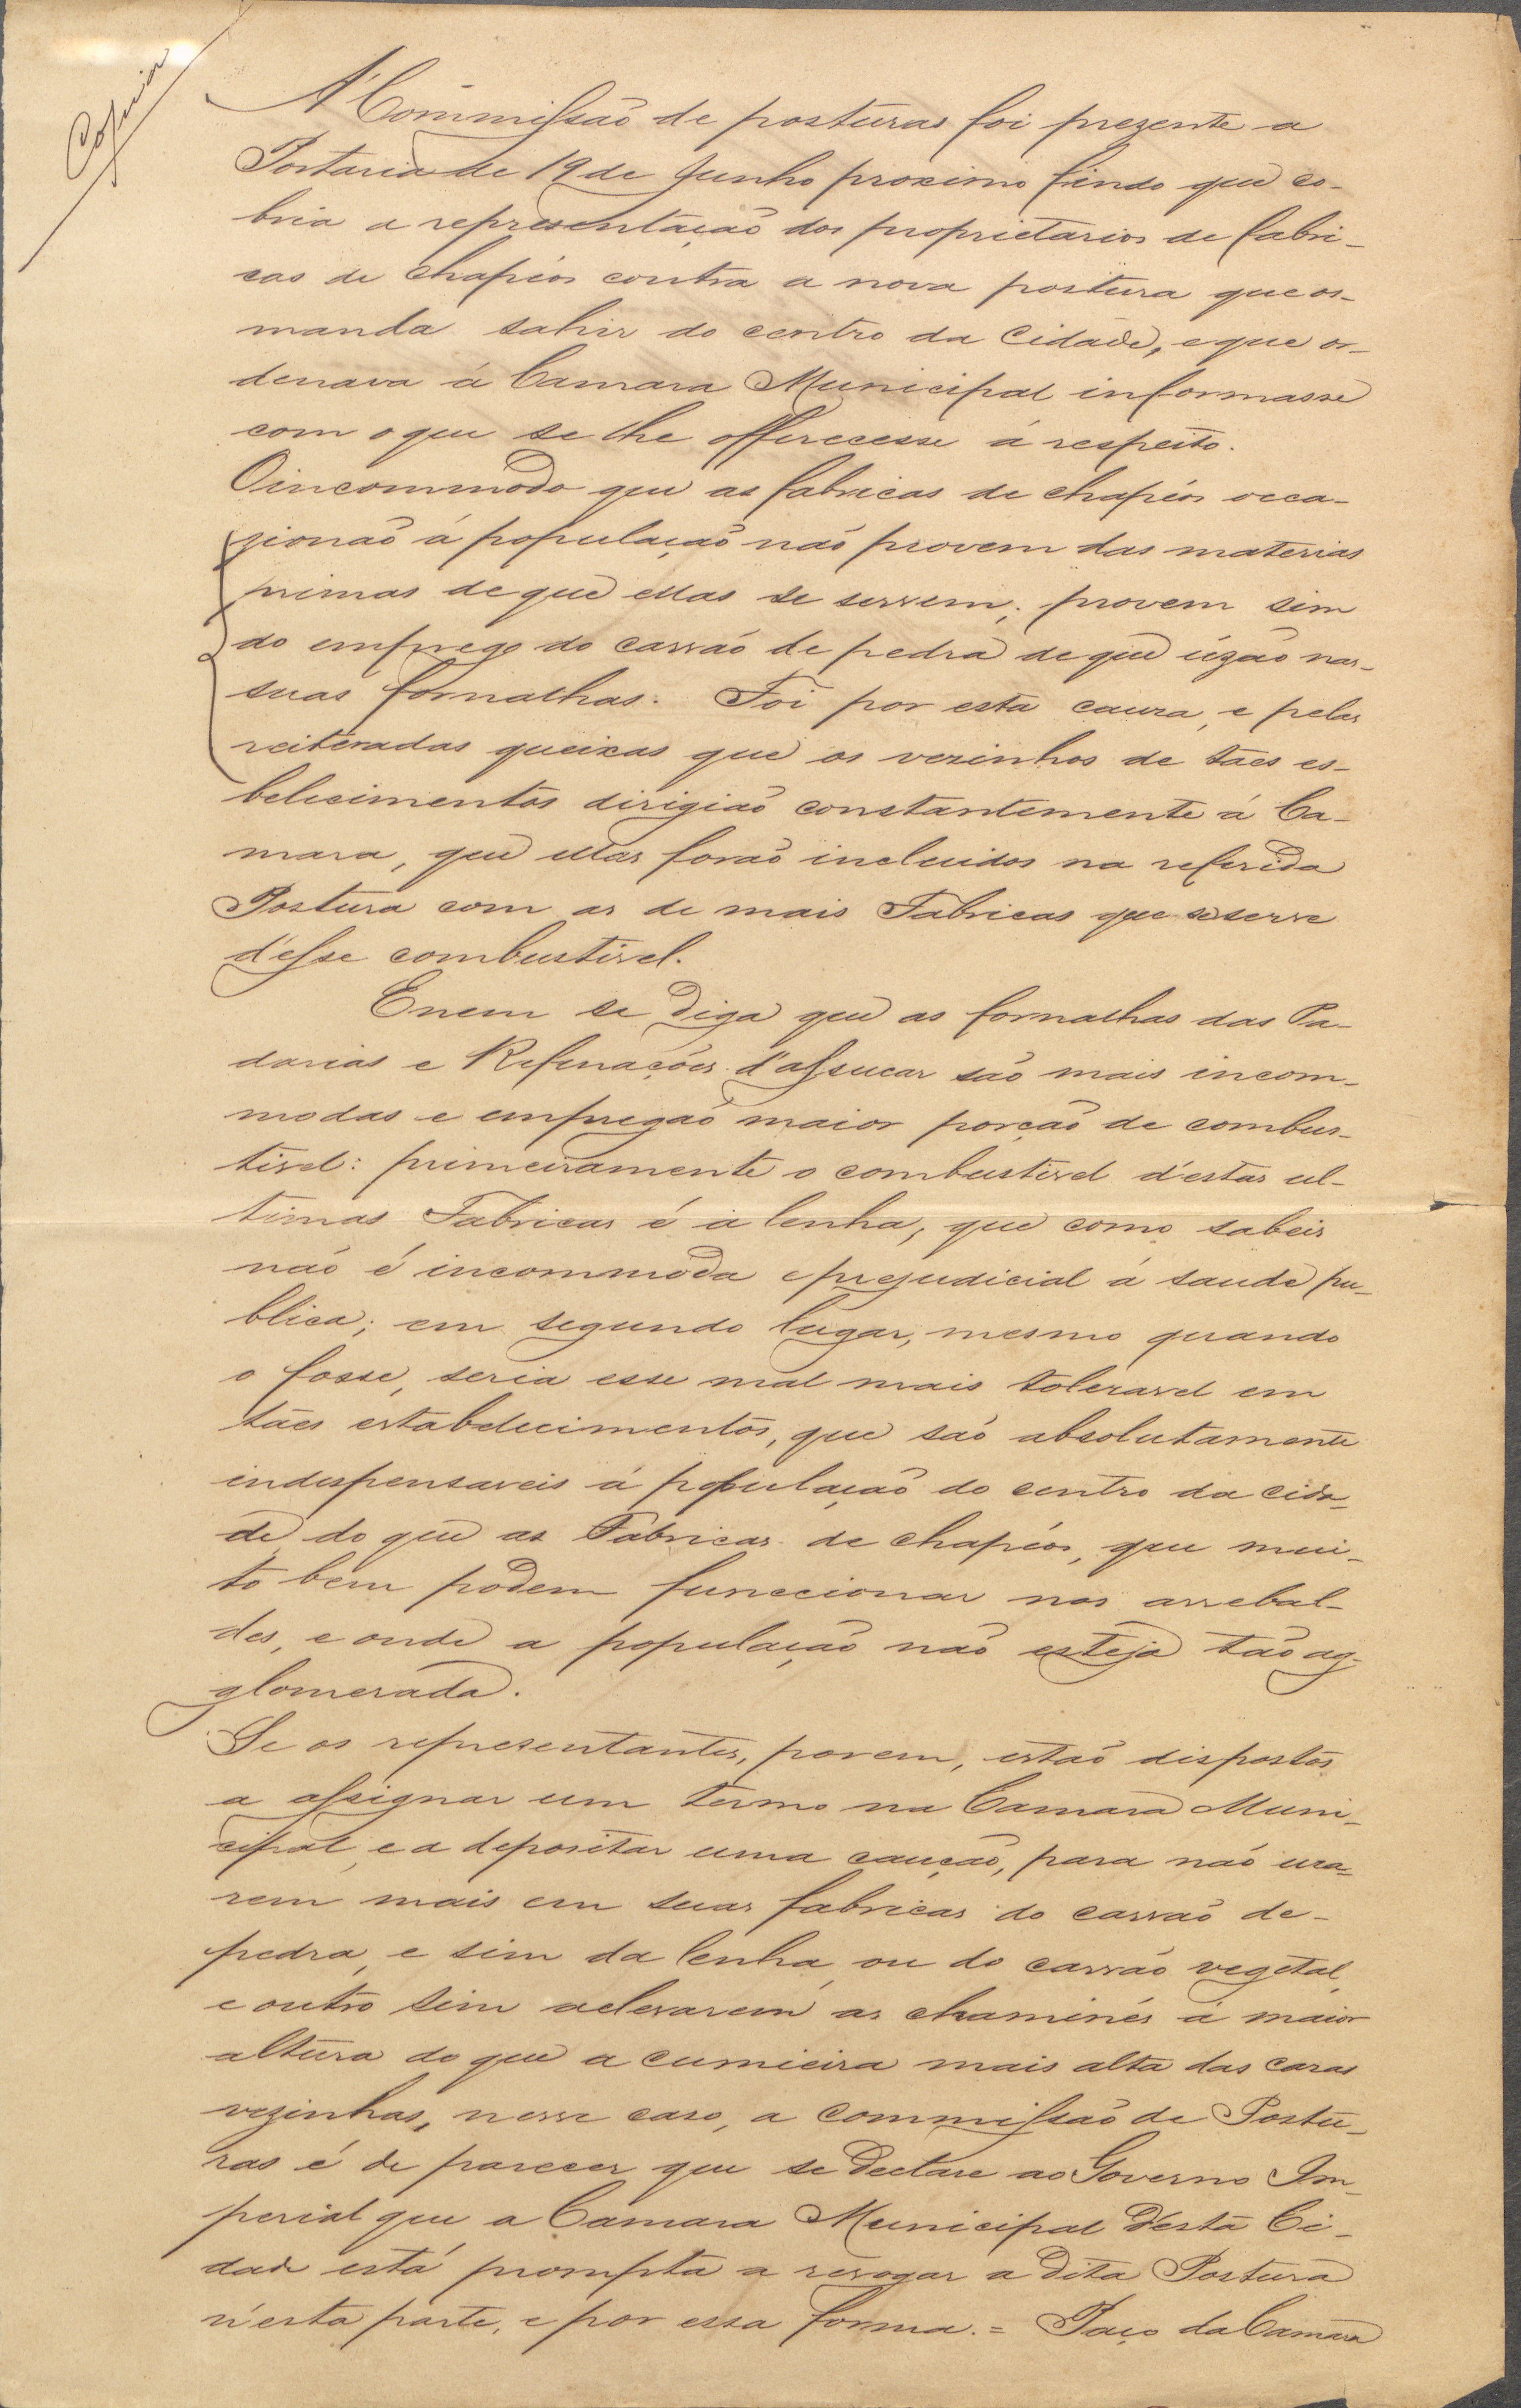 Copia
A' Commissão de posturas foi prezente a
Portaria de 19 de Junho proximo findo que co-
bria a representação dos proprietarios de fabri-
cas de chapéos contra a nova postura que os
manda sahir do centro da Cidade, e que or-
denava á Camara Municipal informasse
com o que se lhe offerecesse á respeito.
O incommodo que as fabricas de chapéos occa-
zionão á população não provem das materias
primas de que ellas se servem; provem sim
do emprego do carvão de pedra de que úzão nas
suas fornalhas. Foi por esta cauza, e pelas
reiteradas queixas que os vezinhos de táes es-
belecimentos dirigião constantemente á Ca-
mara, que ellas forão incluidos na referida
Postura com as de mais Fabricas que se serve
d'esse combustivel.
E nem se diga que as fornalhas das Pa-
darias e Refinações d'assucar são mais incom-
modas e empregão maior porção de combus-
tivel: primeiramente o combustivel d'estas ul-
timas Fabricas é a lenha, que como sabeis
não é incommoda e prejudicial á saude pu-
blica; em segundo lugar, mesmo quando
o fosse, seria esse mal mais toleravel em
táes estabelecimentos, que são absolutamente
indespensaveis á população do centro da cida-
de do que as Fabricas de chapéos, que mui-
to bem podem funccionar nos arrebal-
des, e onde a população não esteja tão ag-
glomerada.
Se os representantes, porem, estão dispostos
a assignar um termo na Camara Muni-
cipal, e a depositar uma caução, para não uza-
rem mais em suas fabricas do carvão de-
pedra, e sim da lenha, ou do carvão vegetal,
e outro sim a elevarem as chaminés á maior
altura do que a cumieira mais alta das casas
vezinhas, nesse caso, a commissão de Postu-
ras é de parecer que se declare ao Governo Im-
perial que a Camara Municipal d'esta Ci-
dade está prompta a revogar a dita Postura
n'esta parte, e por essa forma. = Paço da Camara